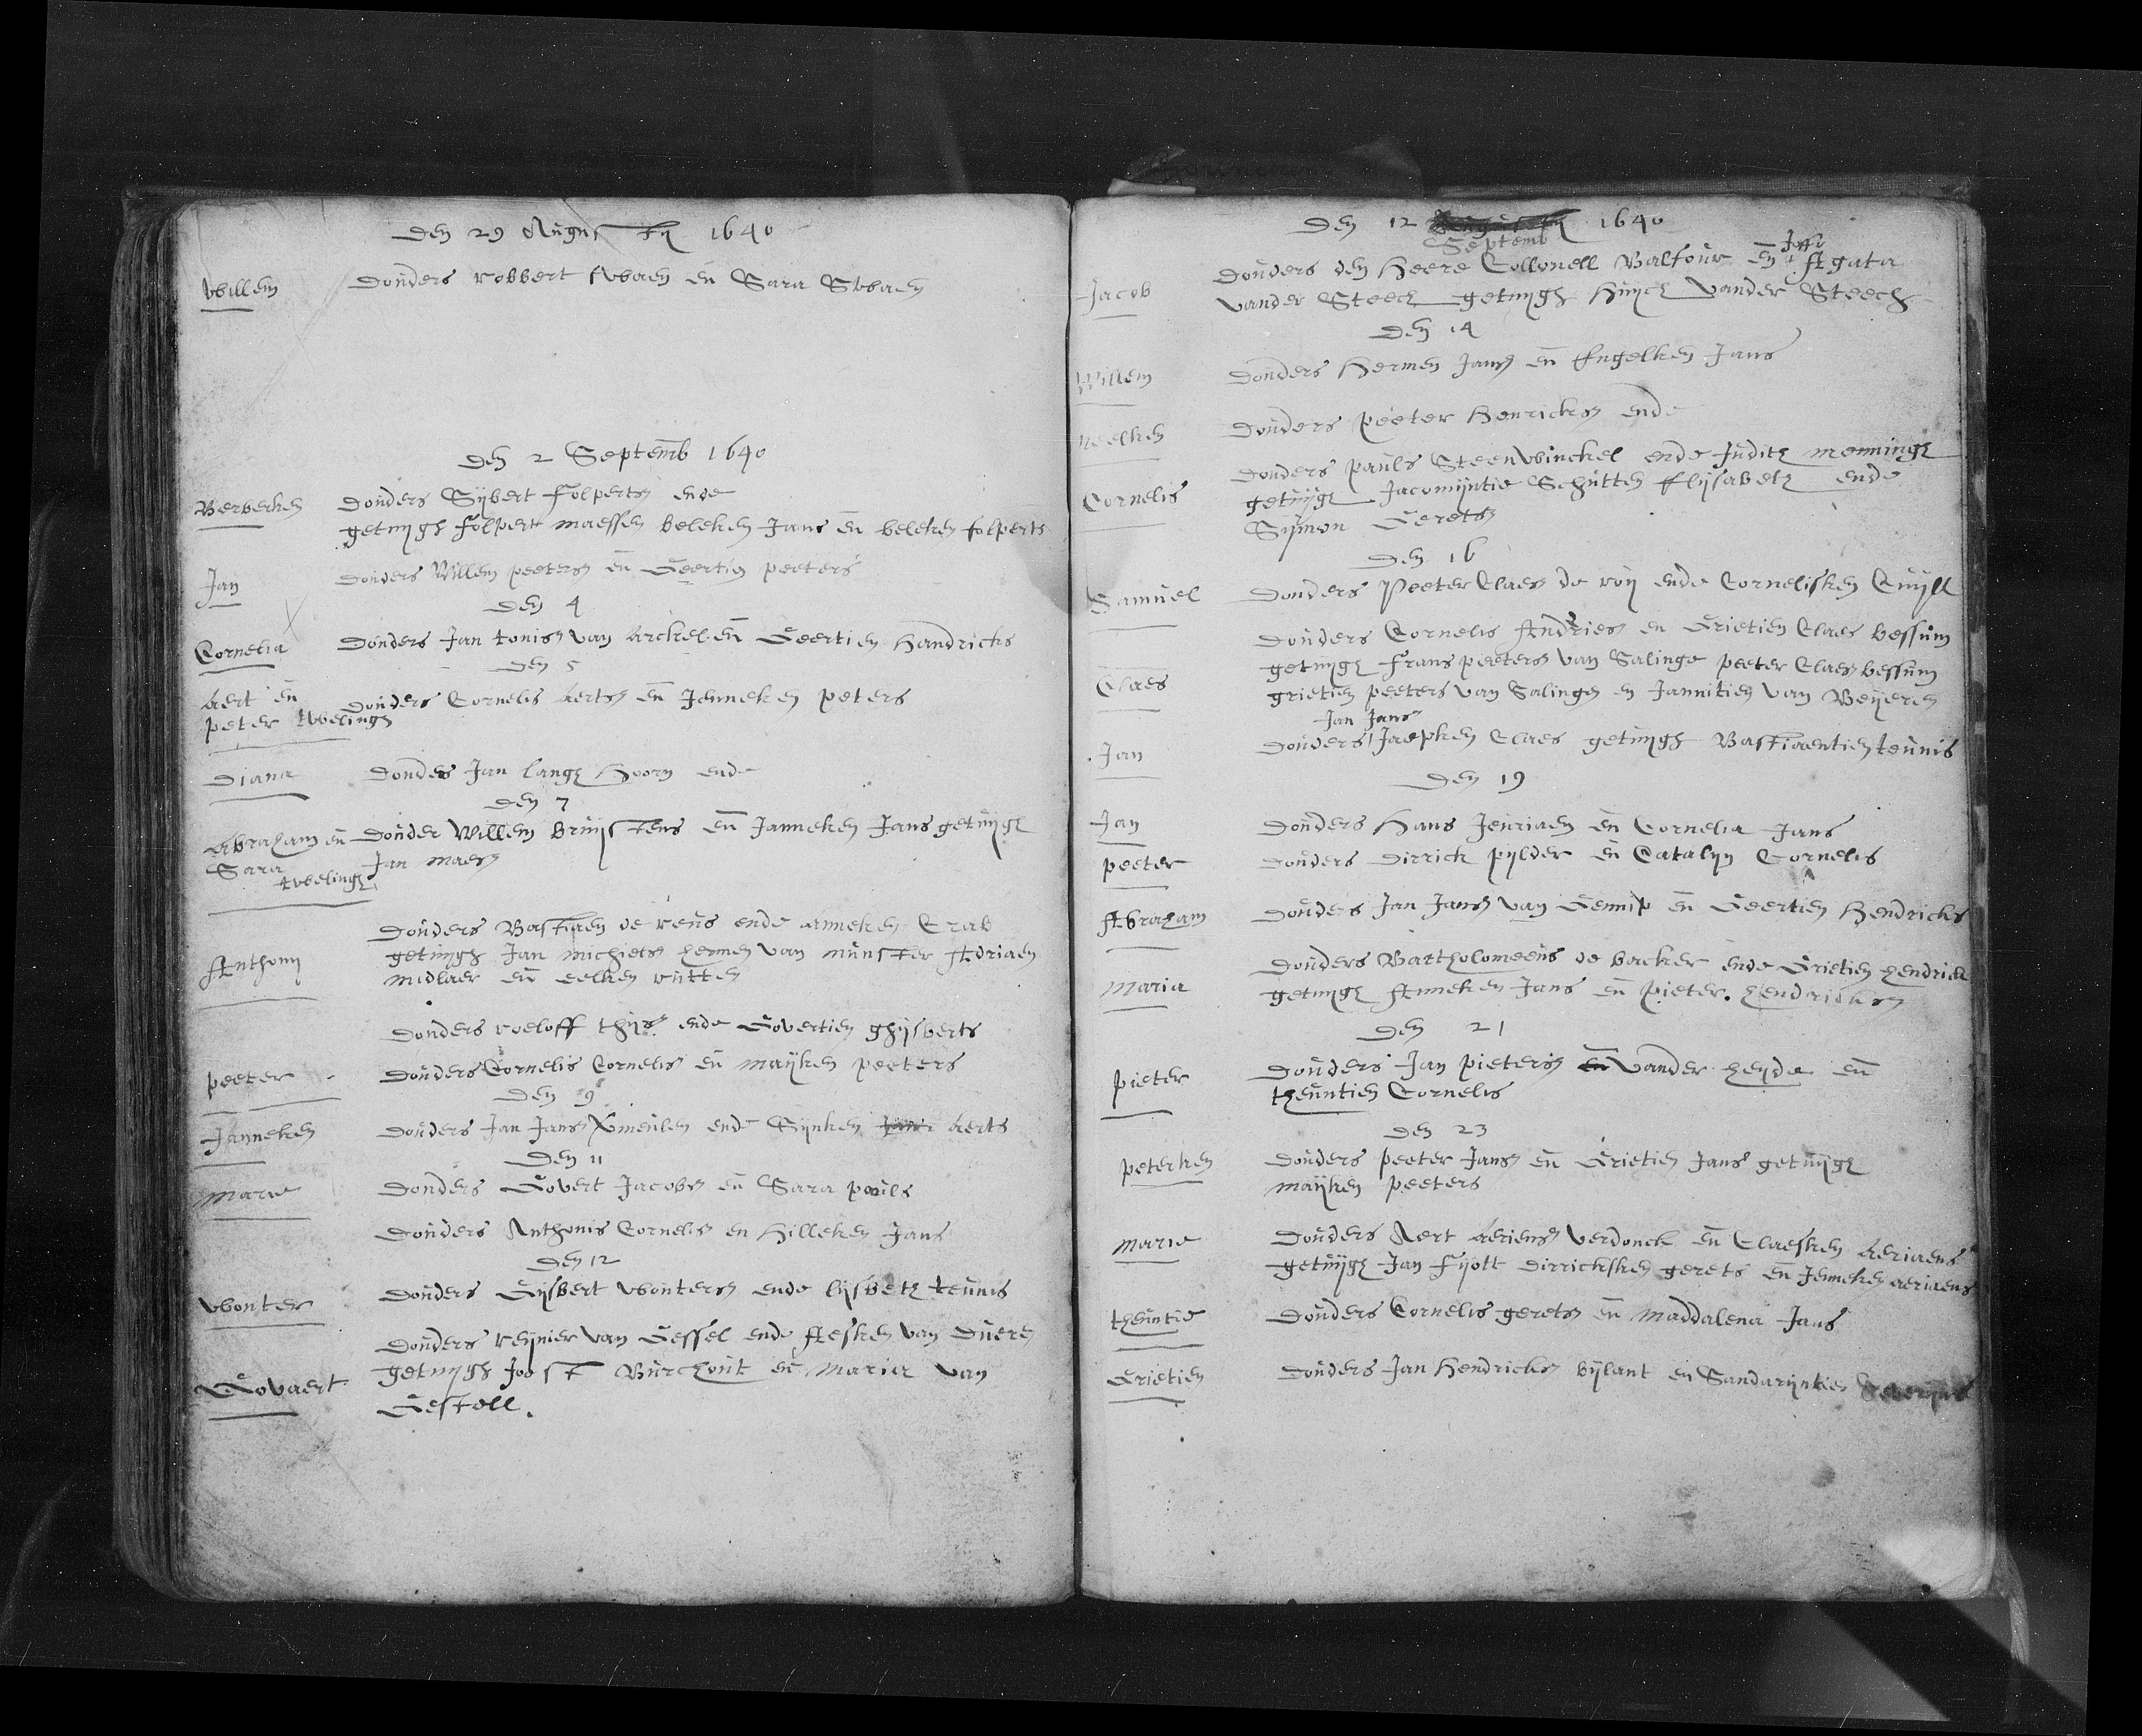 Den 29 Augustij 1640
Willem
Douders robbert swaen en Sara Swaen
Den 2 Septemb 1640
Berberken
Douders Sijbert folperts ende
getuijgh folpert maessen beleken Jans en beleken folperts
Jan
Douders Willem peeters en Geertien peeters
Den 4
Cornelia
Douders Jan tonisz van Arckel en Geertien Handricks
Den 5
Aert en
peter tweelingh
Douders Cornelis Aertsz en Jenneken peters
Diana
Douders Jan langh Hoorn ende
Den 7
Abraham en
Sara
tweelingh
Douder Willem bruijstens en Janneken Jans getuijgh
Jan maesz
Anthonij
Douders Bastiaen de reus ende Anneken Crab
getuijgh Jan michielsz hermen van munster Adriaen
midlaer en eelken rutten
Douders roeloff thijsz ende Govertien ghijsberts
peeter
Douders Cornelis Cornelis en maijken peeters
Den 9
Janneken
Douders Jan Jansz Vmeulen ende Sijnken Jans Aerts
Den 11
Marie
Douders Govert Jacobsz en Sara pauls
Douders Anthonis Cornelisz en Hilleken Jans
Den 12
Wouter
Douders Gijsbert Woutersz ende lijsbeth teunis
Govaert
Douders reijnier van Gessel ende Aesken van Duere
getuijgh Joost Burchout en Maria van
Gestell.
Den 12 1640
Septemb
Jacob
Douders den Heere Collonell Balfour en Joffr Agata
vander Steech getuijgh Huijch vander Steech
Den 14
Willem
Douders Hermen Jansz en Engelken Jans
neelken
Douders peeter Henricksz ende
Cornelis
Douders pauls Steenwinckel ende Judith menningh
getuijgh Jacomijntie Schutten Elijsabeth ende
Sijmon Geretsz
Den 16
Samuel
Douders Peeter Claesz de roij ende Cornelisken Cuijll
Claes
Douders Cornelis Andriesz en Grietien Claes bessum
getuijgh frans peetersz van Salinge peeter Claesz bessum
grietien peeters van Salingen en Jannitien van Beijeren
Jan Jans
Jan
Douders Jaepken Claes getuijgh Bastiaentien teunis
Den 19
Jan
Douders Hans Jeuriaen en Cornelia Jans
peeter
Douders Dirrick pijlder en Catalyn Cornelis
Abraham
Douders Jan Jansz van Gennip en Geertien Hendricks
Maria
Douders Bartholomeeus de backer ende Grietien hendrick
getuijgh Anneken Jans en pieter hendricksz
Den 21
Pieter
Douders Jan pietersz en vander heyde en
theuntien Cornelis
Den 23
peterken
Douders peeter Jansz en Grietien Jans getuijgh
maijken peeters
Marie
Douders Aert Aeriensz verdonck en Claesken Aeriaens
getuijgh Jan Fijott Dirricksken gerets en Jenneken aeriaens
theuntie
Douders Cornelis geretsz en Maddalena Jans
Grietien
Douders Jan Hendricksz bijlant en Sandarijntien